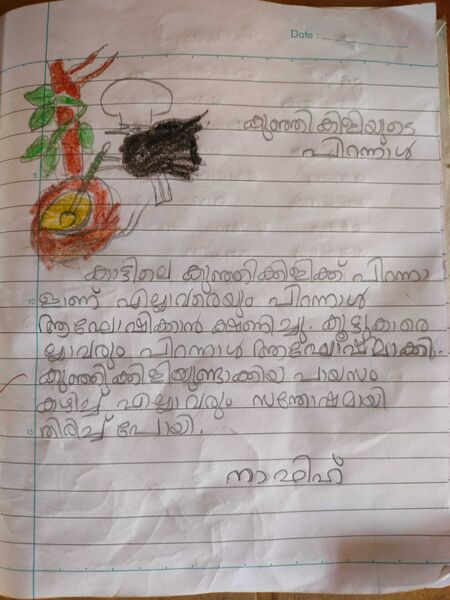 Date :
കുഞ്ഞികിളിയുടെ
പിറന്നാൾ
5
കാട്ടിലെ കുഞ്ഞിക്കിളിക്ക് പിറന്നാ
10 ളാണ് എല്ലാവരെയും പിറന്നാൾ
ആഘോഷിക്കാൻ ക്ഷണിച്ചു. കൂട്ടുകാരെ
ല്ലാവരും പിറന്നാൾ ആഘോഷമാക്കി.
കുഞ്ഞിക്കിളിയുണ്ടാക്കിയ പായസം
കഴിച്ച് എല്ലാവരും സന്തോഷമായി
15 തിരിച്ച് പോയി.